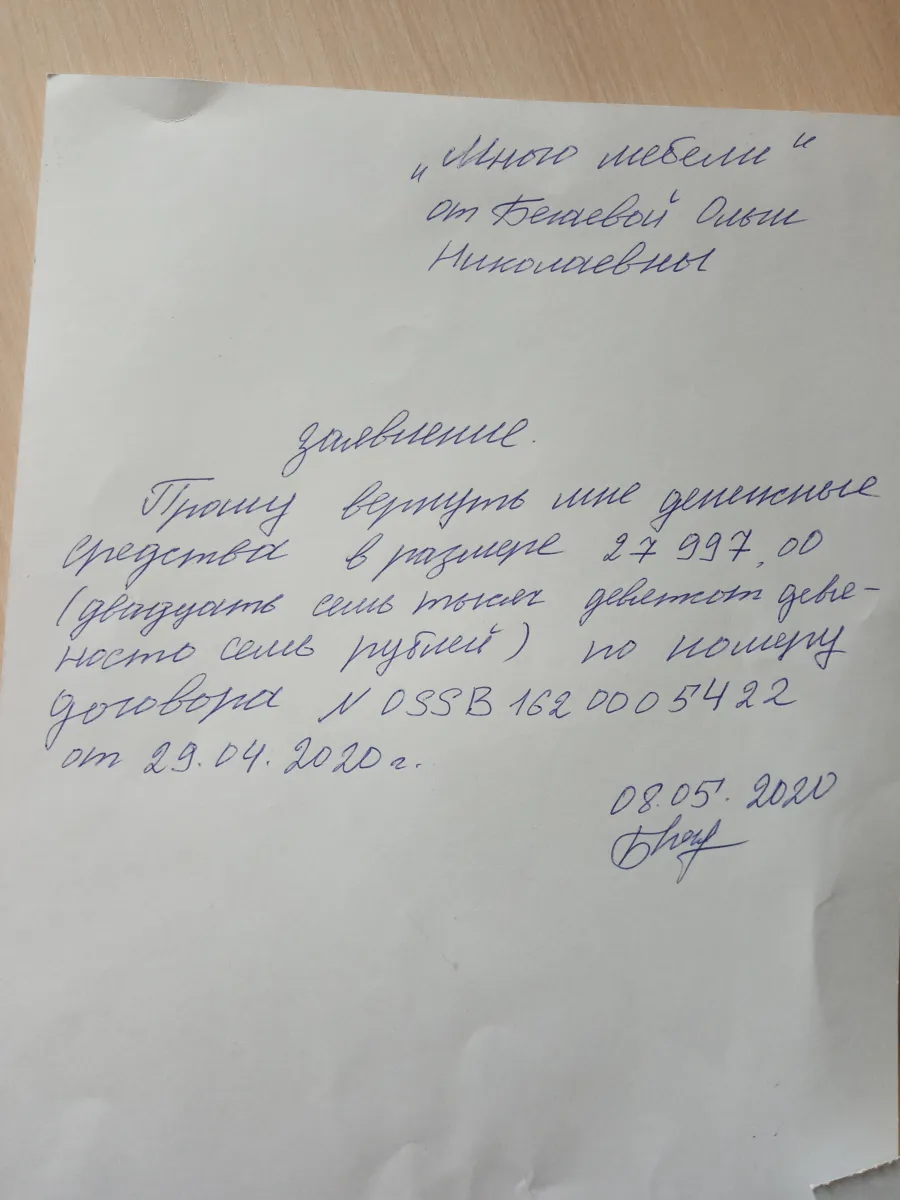 „Много мебели"
от Бегаевой Ольги
Николаевны
заявление.
Прошу вернуть мне денежные
средства в размере 27 997,00
(двадцать семь тысяч девятьсот девя-
носто семь рублей) по номеру
договора N OSSB 1620005422
от 29.04.2020г.
08.05.2020